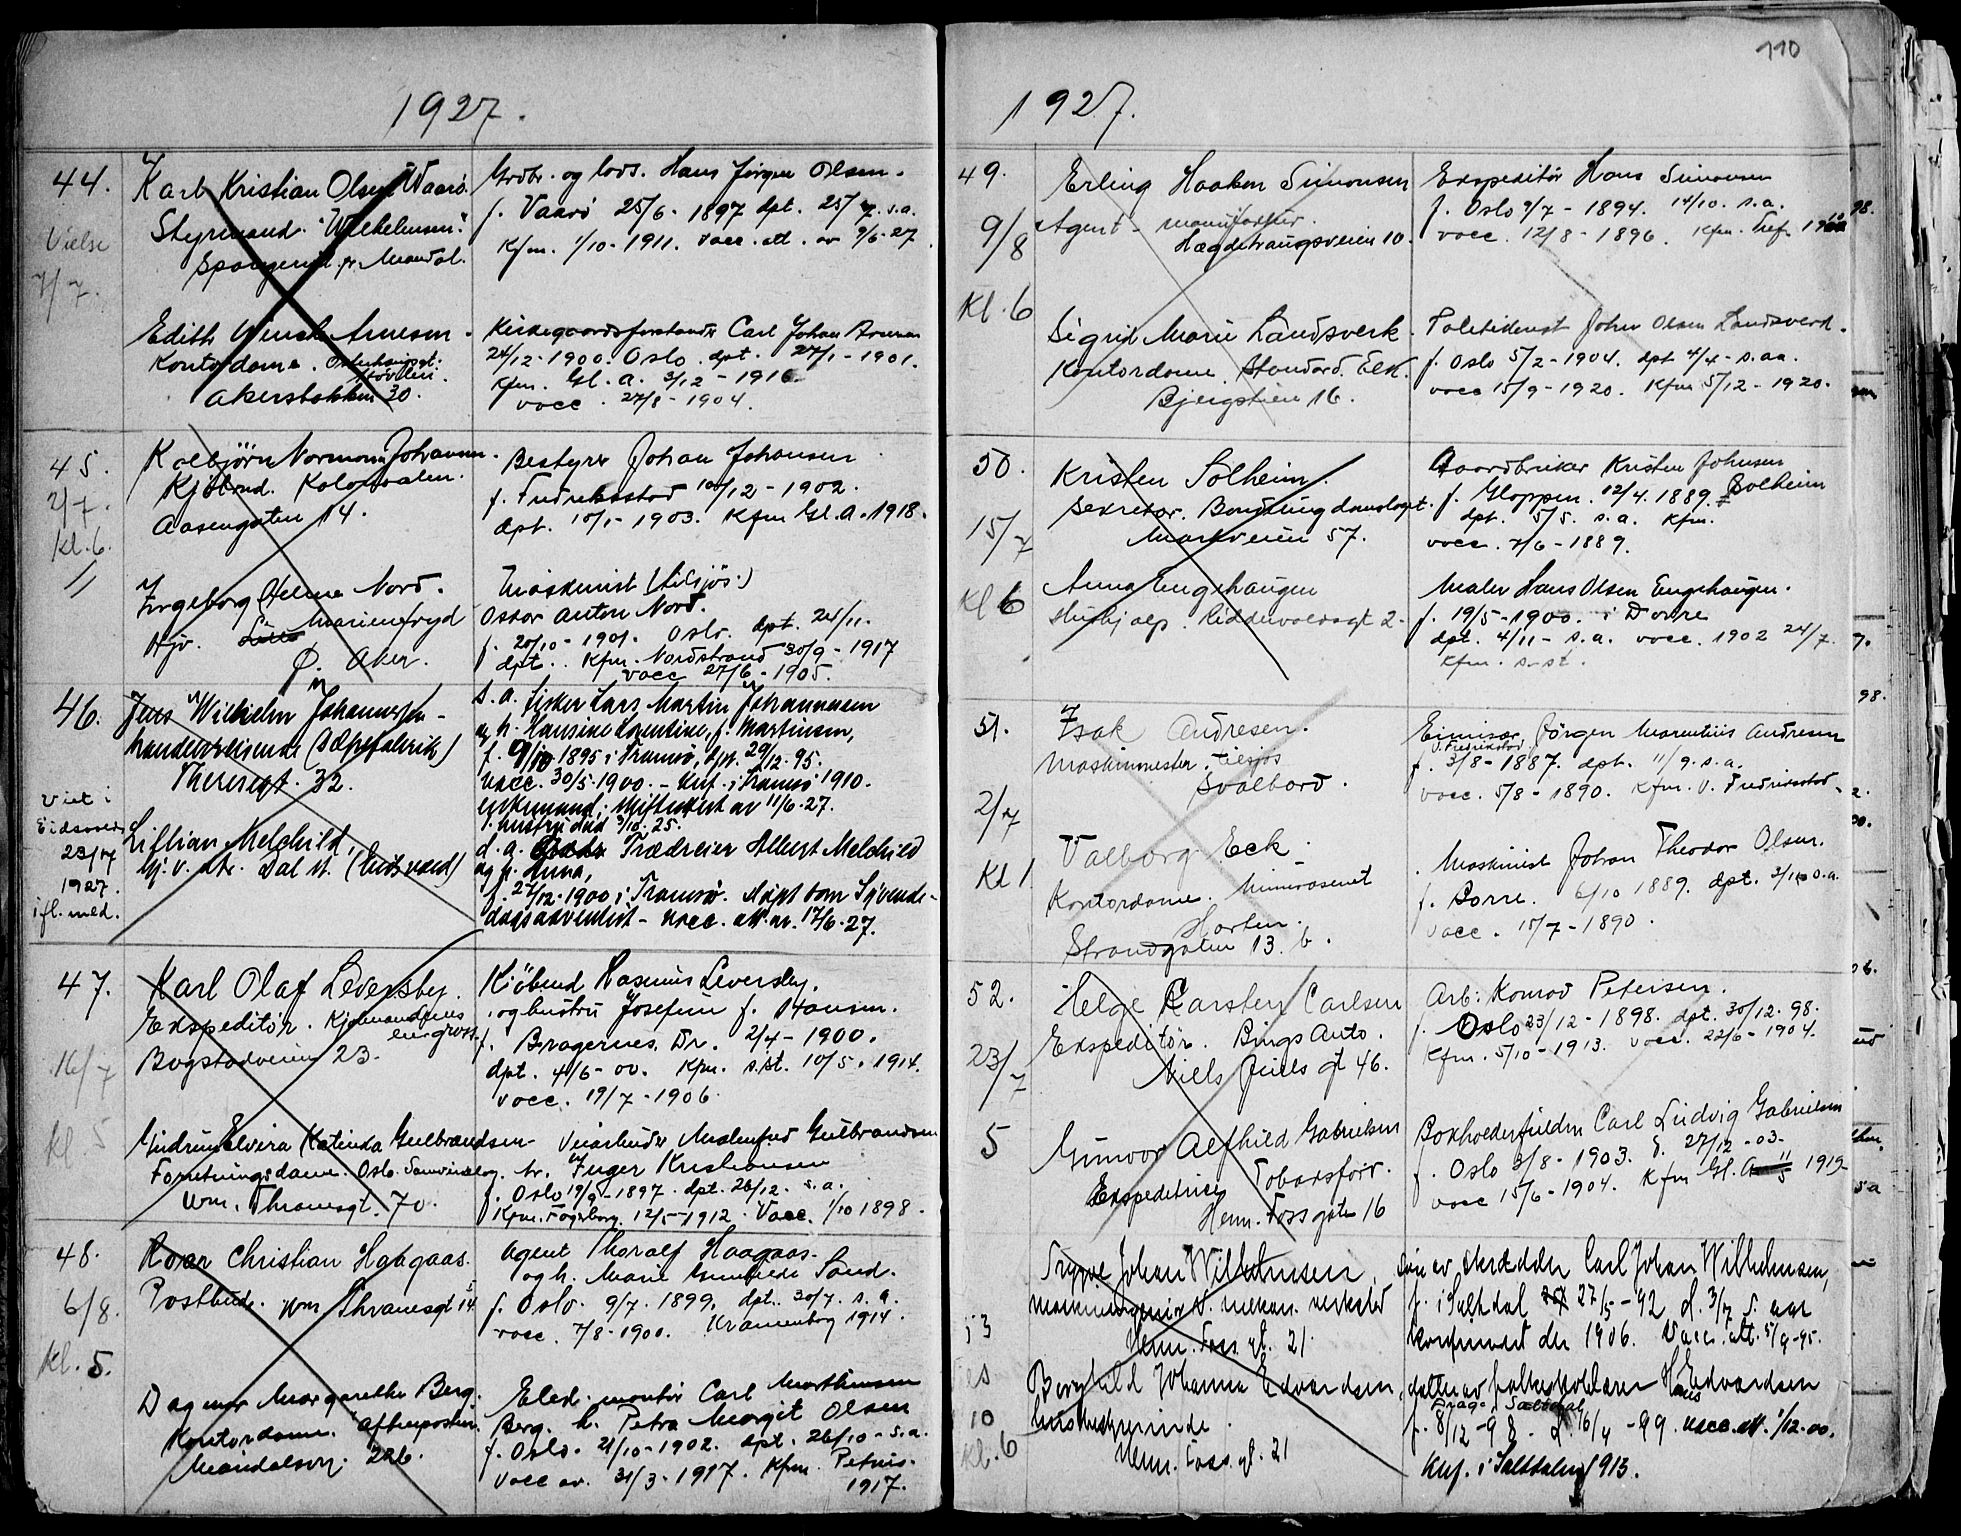 1927.
44.
Vielse
7/7.
Karl Kristian Olsen Waarø.
Styrmand. "Wilhelmsen".
Spangereid pr. Mandal.
Grdbr. og lods. Hans Jørgen Olsen.
f. Vaarø 25/6 - 1897 dpt. 25/7. s.a.
Kfm. 1/10 - 1911. vacc. att. av 9/6-27
Edith Arnesen.
Kontordame.
Akersbakken 30.
Kirkegaardsforstander Carl Johan Arnesen
24/12 - 1900. Oslo. dpt. 27/1 - 1901.
Kfm. Gl. A. 3/12 - 1916
vacc. 27/8 - 1904.
45.
2/7.
Kl. 6.
Kolbjörn Normann Johansen.
Kjöbmd. Kolonialen.
Aasengaten 14.
Bestyrer Johan Johansen
f. Fredriksstad 10/12 - 1902.
dpt. 10/1 - 1903. Kfm Gl. A. 1918.
Ingeborg Helene Nord.
Hjv. Marienfryd
Ø. Aker.
Maskinist (tilsjös.)
Oskar Anton Nord.
f. 20/10 - 1901. Oslo. dpt. 24/11.
dpt.. Kfm. Nordstrand 30/9 - 1917
vacc 27/6 - 1905.
46.
Viet i
Eidsvold
23/7
1927.
ifl. meld.
Jens Wilhelm Johannesen -
handelsreisende (Sæpefabrik)
Theresesgt. 32.
s. a. fisker Lars Martin Johannesen
og h. Hansine Laurentine, f. Martinsen,
f. 9/10 1895 i Tromsø, dpt. 29/12. 95.
vacc. 30/5. 1900. - Knf. i Tromsø 1910.
enkemand; skifteattest av 11/6. 27.
1. hustru død 3/10. 25.
Lillian Melchild,
hj. v. Dal st. (Eidsvold)
d. a. Trædreier Albert Melchild
og h. Anna,
f. 27/12. 1900 i Tromsø. døpt som Syvende-
dagsadventist - vacc. att. av. 17/6. 27.
47.
16/7
Kl 5
Karl Olaf Leversby.
Ekspeditör. Kjömandenes
engros.
Bogstadveien 23.
Kjöbmd Rasmus Leversby.
og hustru Josefine f. Hansen.
f. Bragernes. Dr. 2/4 - 1900.
dpt. 4/6 - Kfm. s. st. 10/5. 1914.
vacc. 19/7 - 1906.
Gudrun Elvira Katinda Gulbrandsen
Forretningsdame. Oslo
Wm. Thranesgt. 70.
Gulbrandsen
Inger Kristiansen
f. Oslo 19/9 - 1897. dpt. 26/12. s. a.
Kfm. Fagerborg. 12/5 - 1912. Vacc. 1/10 1898.
48.
6/8.
Kl. 5.
Roar Christian Haagaas.
Postbud. Wm Thranesgt 14
Agent Thoralf Haagaas.
og h. Marie Sand.
f. Oslo. 9/7. 1899. dpt. 30/7. s. a.
vacc. 7/8 - 1900. Uranienborg 1914.
Dagmar Margarethe Berg.
Kontordame. Aftenposten.
Maridalsvg. 226.
Elect. montör Carl Marthinsen
Berg. h. Petra Margit Olsen
f. Oslo. 21/10 - 1902. dpt. 26/10 - s. a.
vacc av. 31/3 - 1917. Kfm. Petrus.
1917.
110
1927.
49.
9/8
Kl. 6
Erling Haakon Simonsen
Agent - manufaktur.
Hægdehaugsveien 10.
Ekspeditör Hans Simonsen
f. Oslo 9/7 - 1894. 14/10. s. a.
vacc. 12/8 - 1896. Kfm. Tref.
Sigrid Marie Landsverk.
Kontordame. Standard. Elk.
Bjergstien 16.
Politibetjent John Olsen Landsverk.
f. Oslo 5/2 - 1904. dpt 4/4 - s. aa.
vacc 15/9 - 1920. Kfm 5/12 - 1920.
50.
15/7
Kl 6
Kristen Solheim.
Sekretær. Bondeungdomslaget.
Markveien 57.
Gaardbruker Kristen Johnsen
Solheim
f. Gloppen. 12/4. 1889.
dpt. 5/5. s. a. Kfm.
vacc. 7/6 - 1889.
Anna Engehaugen
Hushjælp. Riddervoldsgt 2.
Maler Hans Olsen Engehaugen.
f. 19/5 - 1900. i Dovre
dpt. 4/11 - s. a. vacc. 1902 24/7.
Kfm. s. st.
51.
2/7
Kl 1
Isak Andresen.
Maskinmester, tilsjös
Svalbard.
Jörgen Marentius Andresen
f. 3/8 - 1887. dpt. 11/9. s. a.
vacc. 5/8 - 1890. Kfm. V. Fredrikstad.
Valborg Eck.
Kontordame. Minevæsenet
Horten.
Strandgaten 13. b.
Maskinist Johan Theodor Olsen.
f. Borre. 6/10 1889. dpt. 3/11 s. a.
vacc. 15/7 - 1890.
52.
23/7
5
Helge Karsten Carlsen
Ekspeditør. Bings Auto.
Niels Juels gt 46.
Arb: Konrad Petersen.
f. Oslo 23/12 - 1898. dpt. 30/12. 98.
Kfm. 5/10 - 1913. vacc. 22/6 - 1904.
Gunvor Alfhild Gabrielsen
Ekspeditrice Tobaksforr.
Henr. Fossgate 16
Bokholderfuldm Carl Ludvig Gabrielsen
f. Oslo 3/8 - 1903. d. 27/12 - 03.
vacc 15/6 - 1904. Kfm Gl. A 1919
53
10
Kl. 6
Trygve Johan Wilhelmsen.
maskiningeniør v. mekan. verksted
Henr. Foss gt. 21.
Søn av skrædder Carl Johan Wilhelmsen,
f. i Saltdal 27/5 - 92 d. 3/7 s. aar
konfirmert der 1906. Vacc. att. 5/9-95.
Borghild Johanna Edvardsen,
husbestyrerinde.
Henr. Foss gt. 21
datter av Hans Edvardsen
f. 8/12 - 98. d. 16/4 - 99. vacc. att. 1/12. 00.
Knf. i Saltdalen 1913.